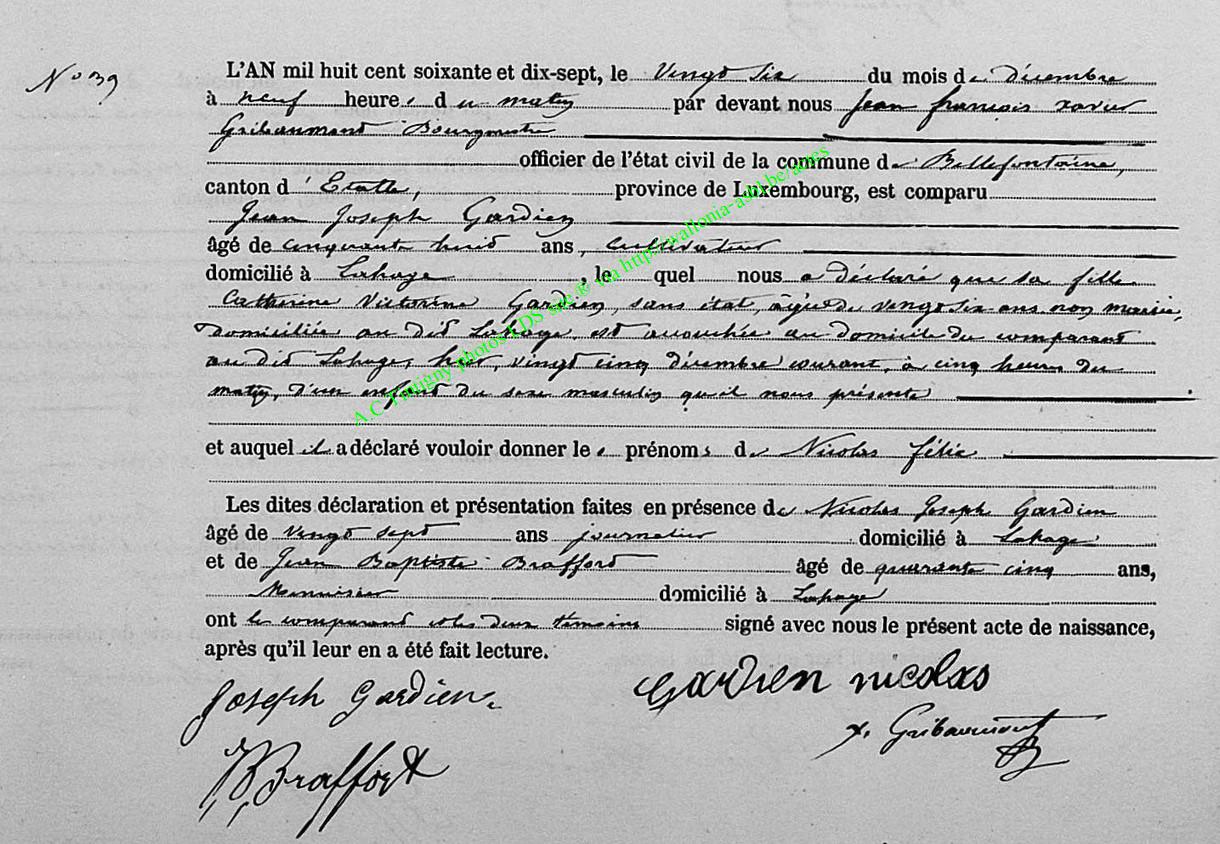 N° 39
L'AN mil huit cent soixante et dix-sept, le Vingt Six du mois de Décembre
à neuf heures du matin par devant nous Jean françois xavier
Gribaumont Bourgmestre
officier de l'état civil de la commune de Bellefontaine,
canton d'Etalle, province de Luxembourg, est comparu
Jean Joseph Gardien
âgé de cinquante huit ans, Cultivateur
domicilié à Lahage, lequel nous a déclaré que sa fille
Catherine Victorine Gardien, sans état, âgée de vingt six ans non mariée,
domiciliée au dit Lahage, est accouchée au domicile du comparant
au dit Lahage, hier, vingt cinq décembre courant, à cinq heures du
matin, d'un enfant du sexe masculin qu'il nous présente
et auquel il a déclaré vouloir donner les prénoms de Nicolas félix
Les dites déclaration et présentation faites en présence de Nicolas Joseph Gardien
âgé de vingt sept ans journalier domicilié à Lahage
et de Jean Baptiste Braffort âgé de quarante cinq ans,
Menuisier domicilié à Lahage
ont le comparant et les deux témoins signé avec nous le présent acte de naissance,
après qu'il leur en a été fait lecture.
Joseph Gardien
Gardien nicolas
x. Gribaumont
JB Braffort
A.C. Tintigny photos EDS site® via http://wallonia-asbl.be/actes